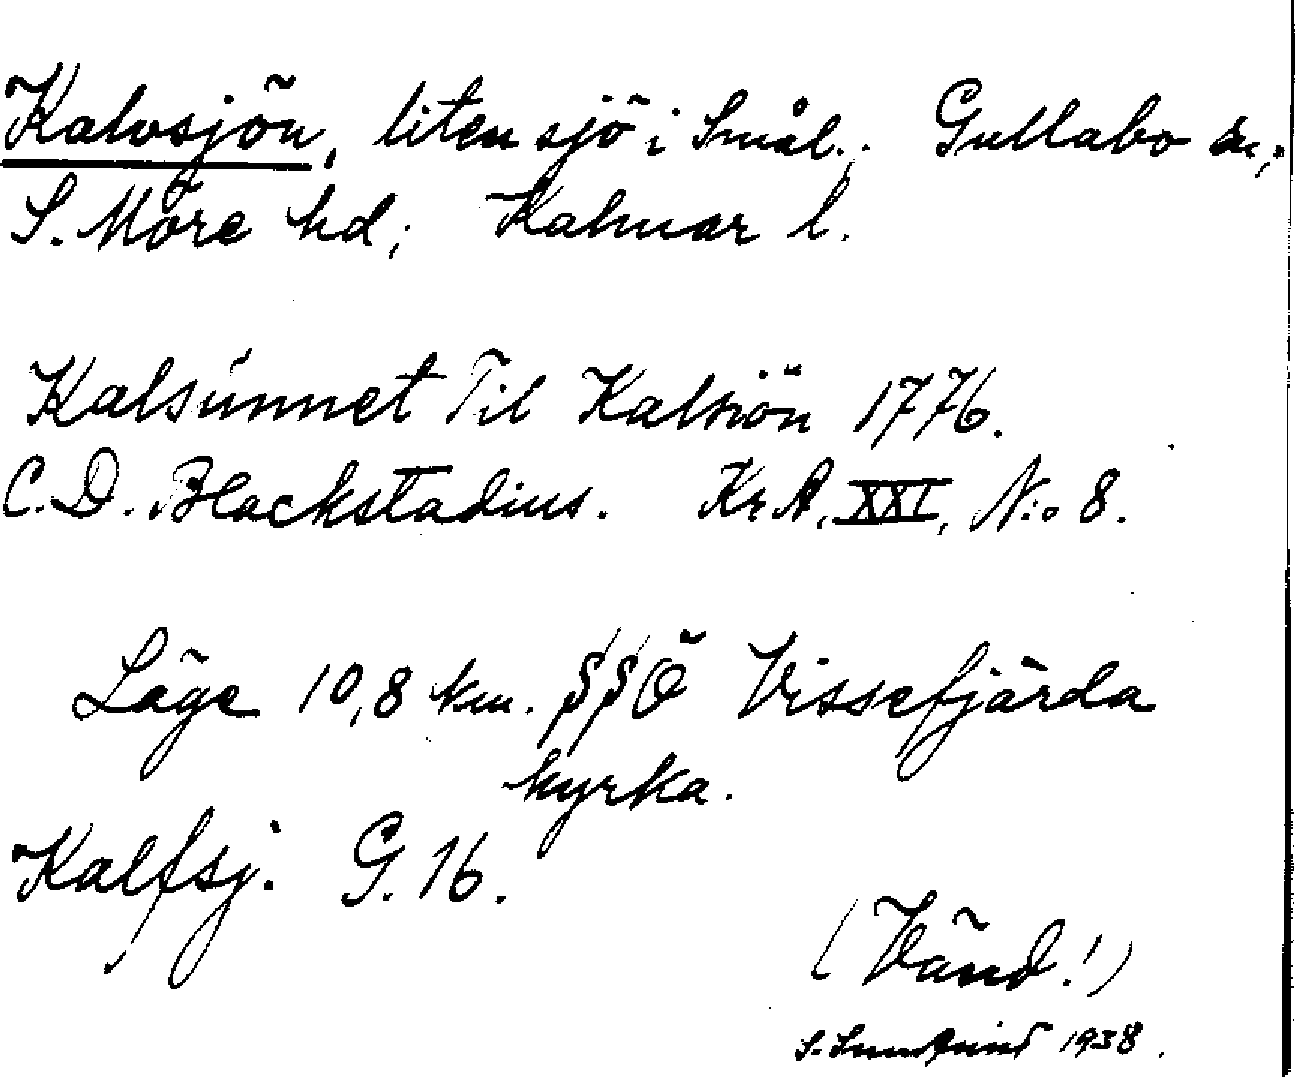 Kalvsjön, liten sjö i Smål.; Gullabo sn;
S. Möre hd; Kalmar l.
Kalsunnet Til Kalsiön 1776.
C.D. Blackstadius. Kr.A. XXI, N:o 8.
Läge 10,8 km. SSÖ Vissefjärda
kyrka.
Kalfsj. G. 16.
(Vänd!)
S. 1938.